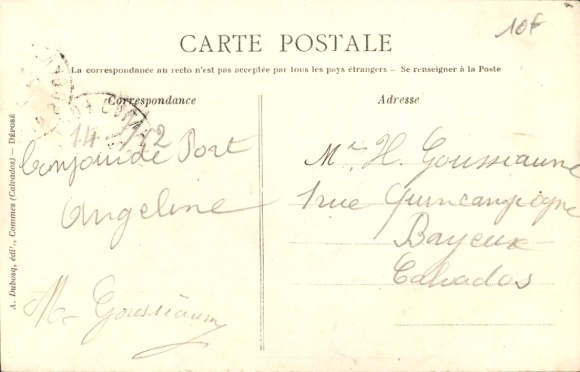 10f
CARTE POSTALE
La correspondance au recto n'est pas acceptée par tous les pays étrangers – Se renseigner à la Poste
Correspondance
Adresse
A. Dubosq, édit., Commes (Calvados) — DÉPOSÉ
de Port
Angeline
Mr H. Goussiaume
1 rue Quincampoigne
Bayeux
Calvados